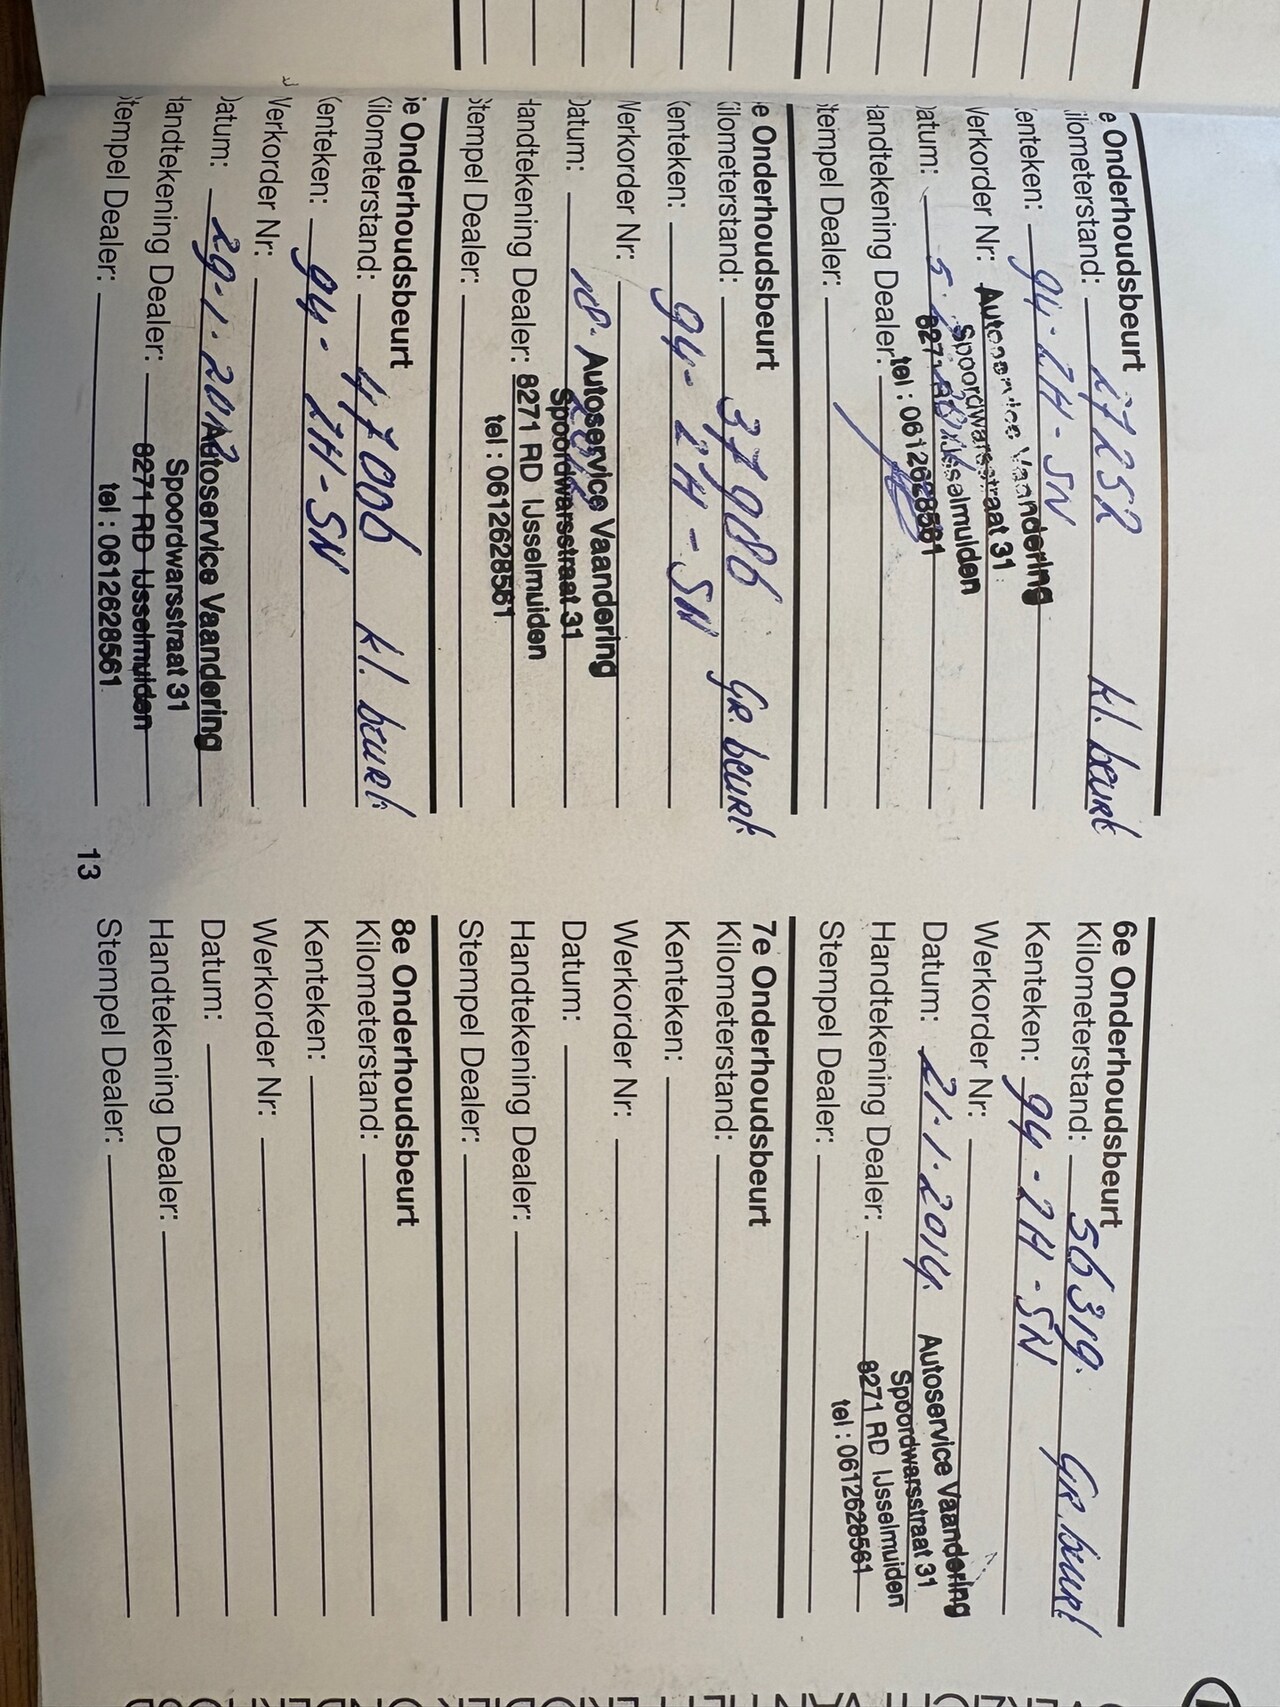 e Onderhoudsbeurt
ilometerstand: 27252 kl. beurt
enteken: 94-ZH-SN
Verkorder Nr: Autoservice Vaandering
Spoordwarsstraat 31
atum: 5
8271 RD IJsselmuiden
landtekening Dealer: tel : 0612628561
tempel Dealer:
e Onderhoudsbeurt
ilometerstand: 37986 GR. beurt
enteken: 94-ZH-SN
Werkorder Nr:
Autoservice Vaandering
Datum: 18-
Spoordwarsstraat 31
Handtekening Dealer: 8271 RD IJsselmuiden
tel : 0612628561
Stempel Dealer:
e Onderhoudsbeurt
Kilometerstand: 47006 kl. beurt
Kenteken: 94-ZH-SN
Werkorder Nr:
Datum: 29-1-2013 Autoservice Vaandering
Spoordwarsstraat 31
Handtekening Dealer: 8271 RD IJsselmuiden
tel : 0612628561
Stempel Dealer:
13
6e Onderhoudsbeurt
Kilometerstand: 56319. GR. beurt
Kenteken: 94-ZH-SN
Werkorder Nr:
Datum: 21-1-2014. Autoservice Vaandering
Spoordwarsstraat 31
Handtekening Dealer: 8271 RD IJsselmuiden
tel : 0612628561
Stempel Dealer:
7e Onderhoudsbeurt
Kilometerstand:
Kenteken:
Werkorder Nr:
Datum:
Handtekening Dealer:
Stempel Dealer:
8e Onderhoudsbeurt
Kilometerstand:
Kenteken:
Werkorder Nr:
Datum:
Handtekening Dealer:
Stempel Dealer: